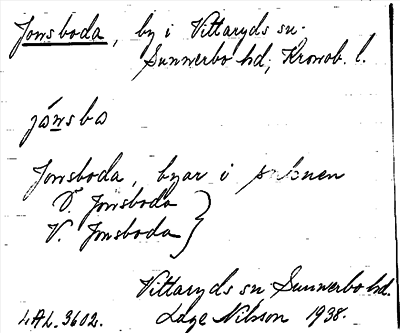 Jonsboda, by i Vittaryds sn.
Sunnerbo hd; Kronob. l.
jónsbo
Jonsboda, byar i socknen
Ö. Jonsboda
V. Jonsboda
Vittaryds sn Sunnerbo hd.
LAL. 3602. Lage Nilsson 1938.